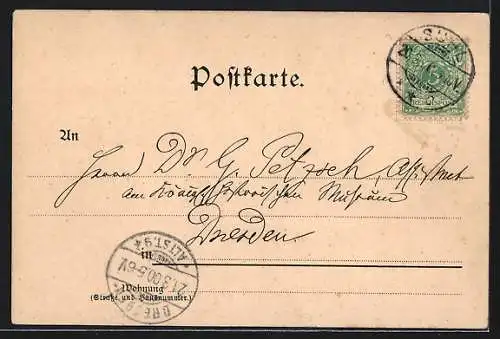 Postkarte.
An
Herrn Dr G. Petzsch, Assistent
am Königl. Historischen Museum
Dresden.
in
Wohnung
(Straße und Hausnummer.)
ALTST. 9 z
21.3.00.5-6V.